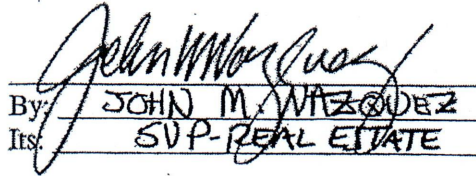 John M Vazquez
By: JOHN M. VAZQUEZ
Its: SVP-REAL ESTATE